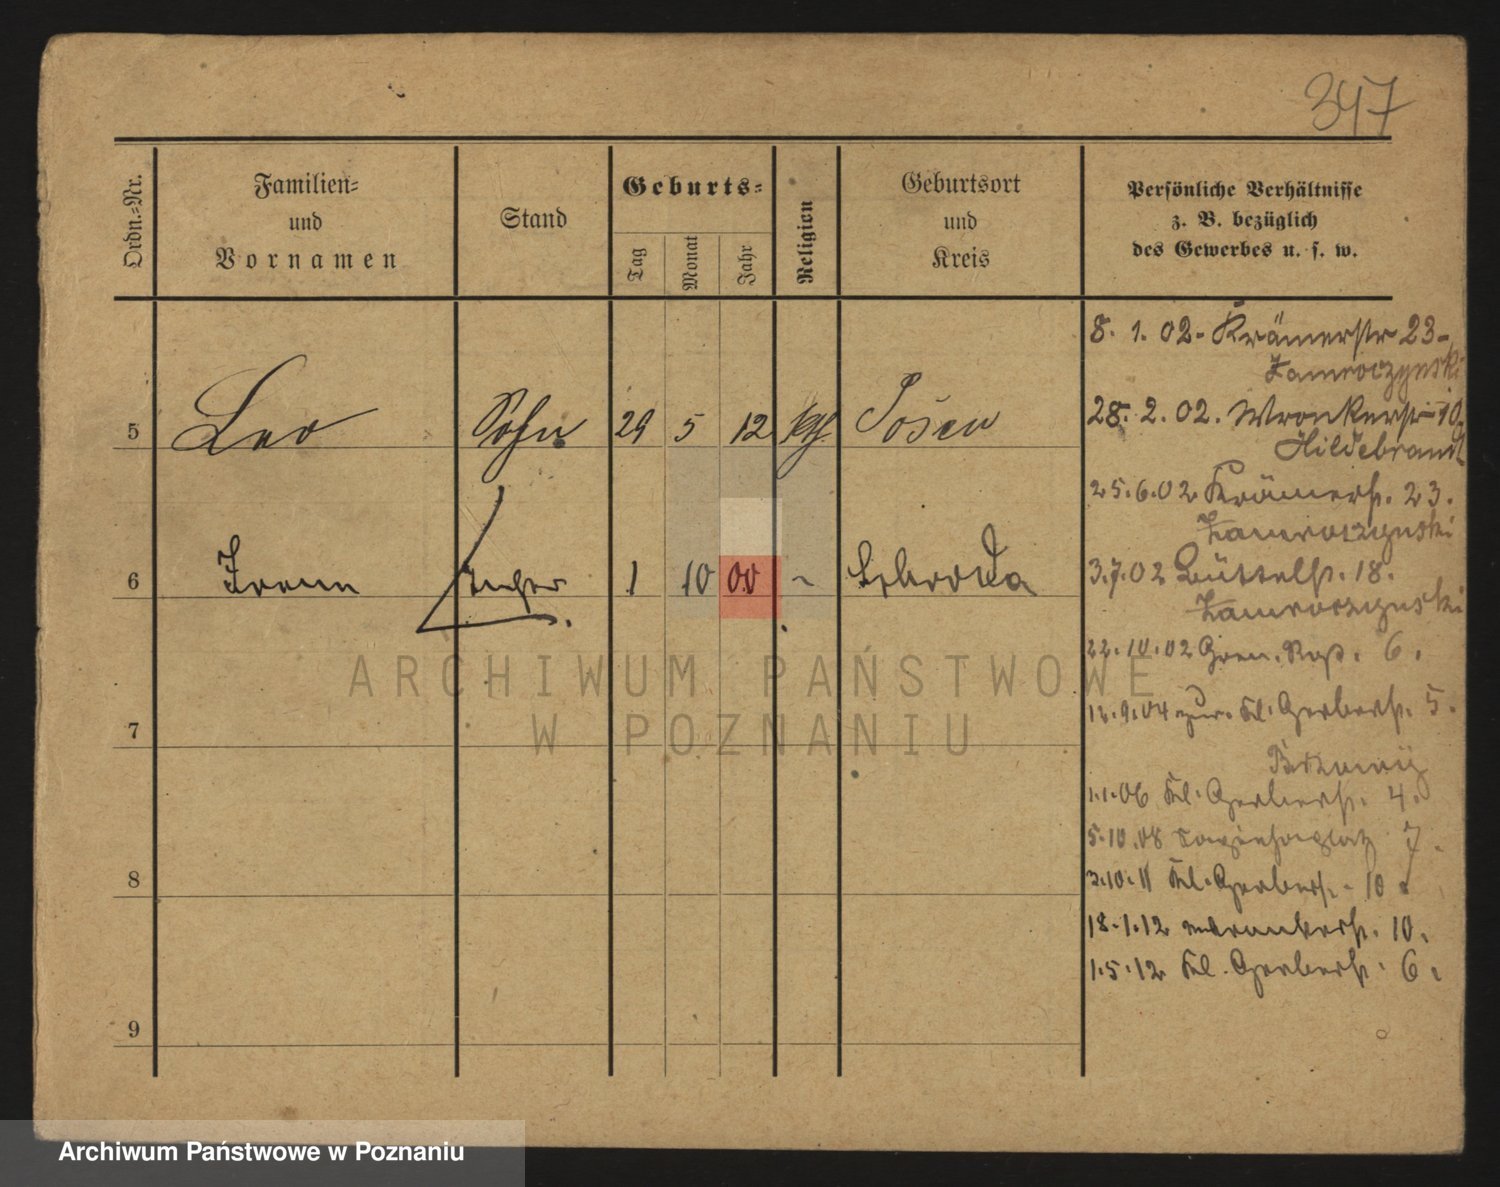 347
Ordn.=Nr.
Familien=
und
Vornamen
Stand
Geburts=
Tag
Monat
Jahr
Religion
Geburtsort
und
Kreis
Persönliche Verhältnisse
z. B. bezüglich
des Gewerbes u. s. w.
5 Leo Sohn 29 5 12 kth. Posen
6 1 10 00 Schroda
7
8
9
8. 1. 02. Krämerstr 23
Zamroczynski
28. 2. 02. Wronkerstr 10
Hildebrandt
25.6.02 Krämerstr. 23.
Zamroczynski
3.7.02 Büttelstr. 18.
Zamroczynski
22.10.02 6.
12.9.04 zur. Kl. Gerberstr. 5.
1.1.06 Kl. Gerberstr. 4.
5.10.08 Sapiehaplatz 7.
3.10.11 Kl. Gerberstr. 10.
18.1.12 Wronkerstr. 10.
1.5.12 Kl. Gerberstr. 6.
ARCHIWUM PAŃSTWOWE
W POZNANIU
Archiwum Państwowe w Poznaniu